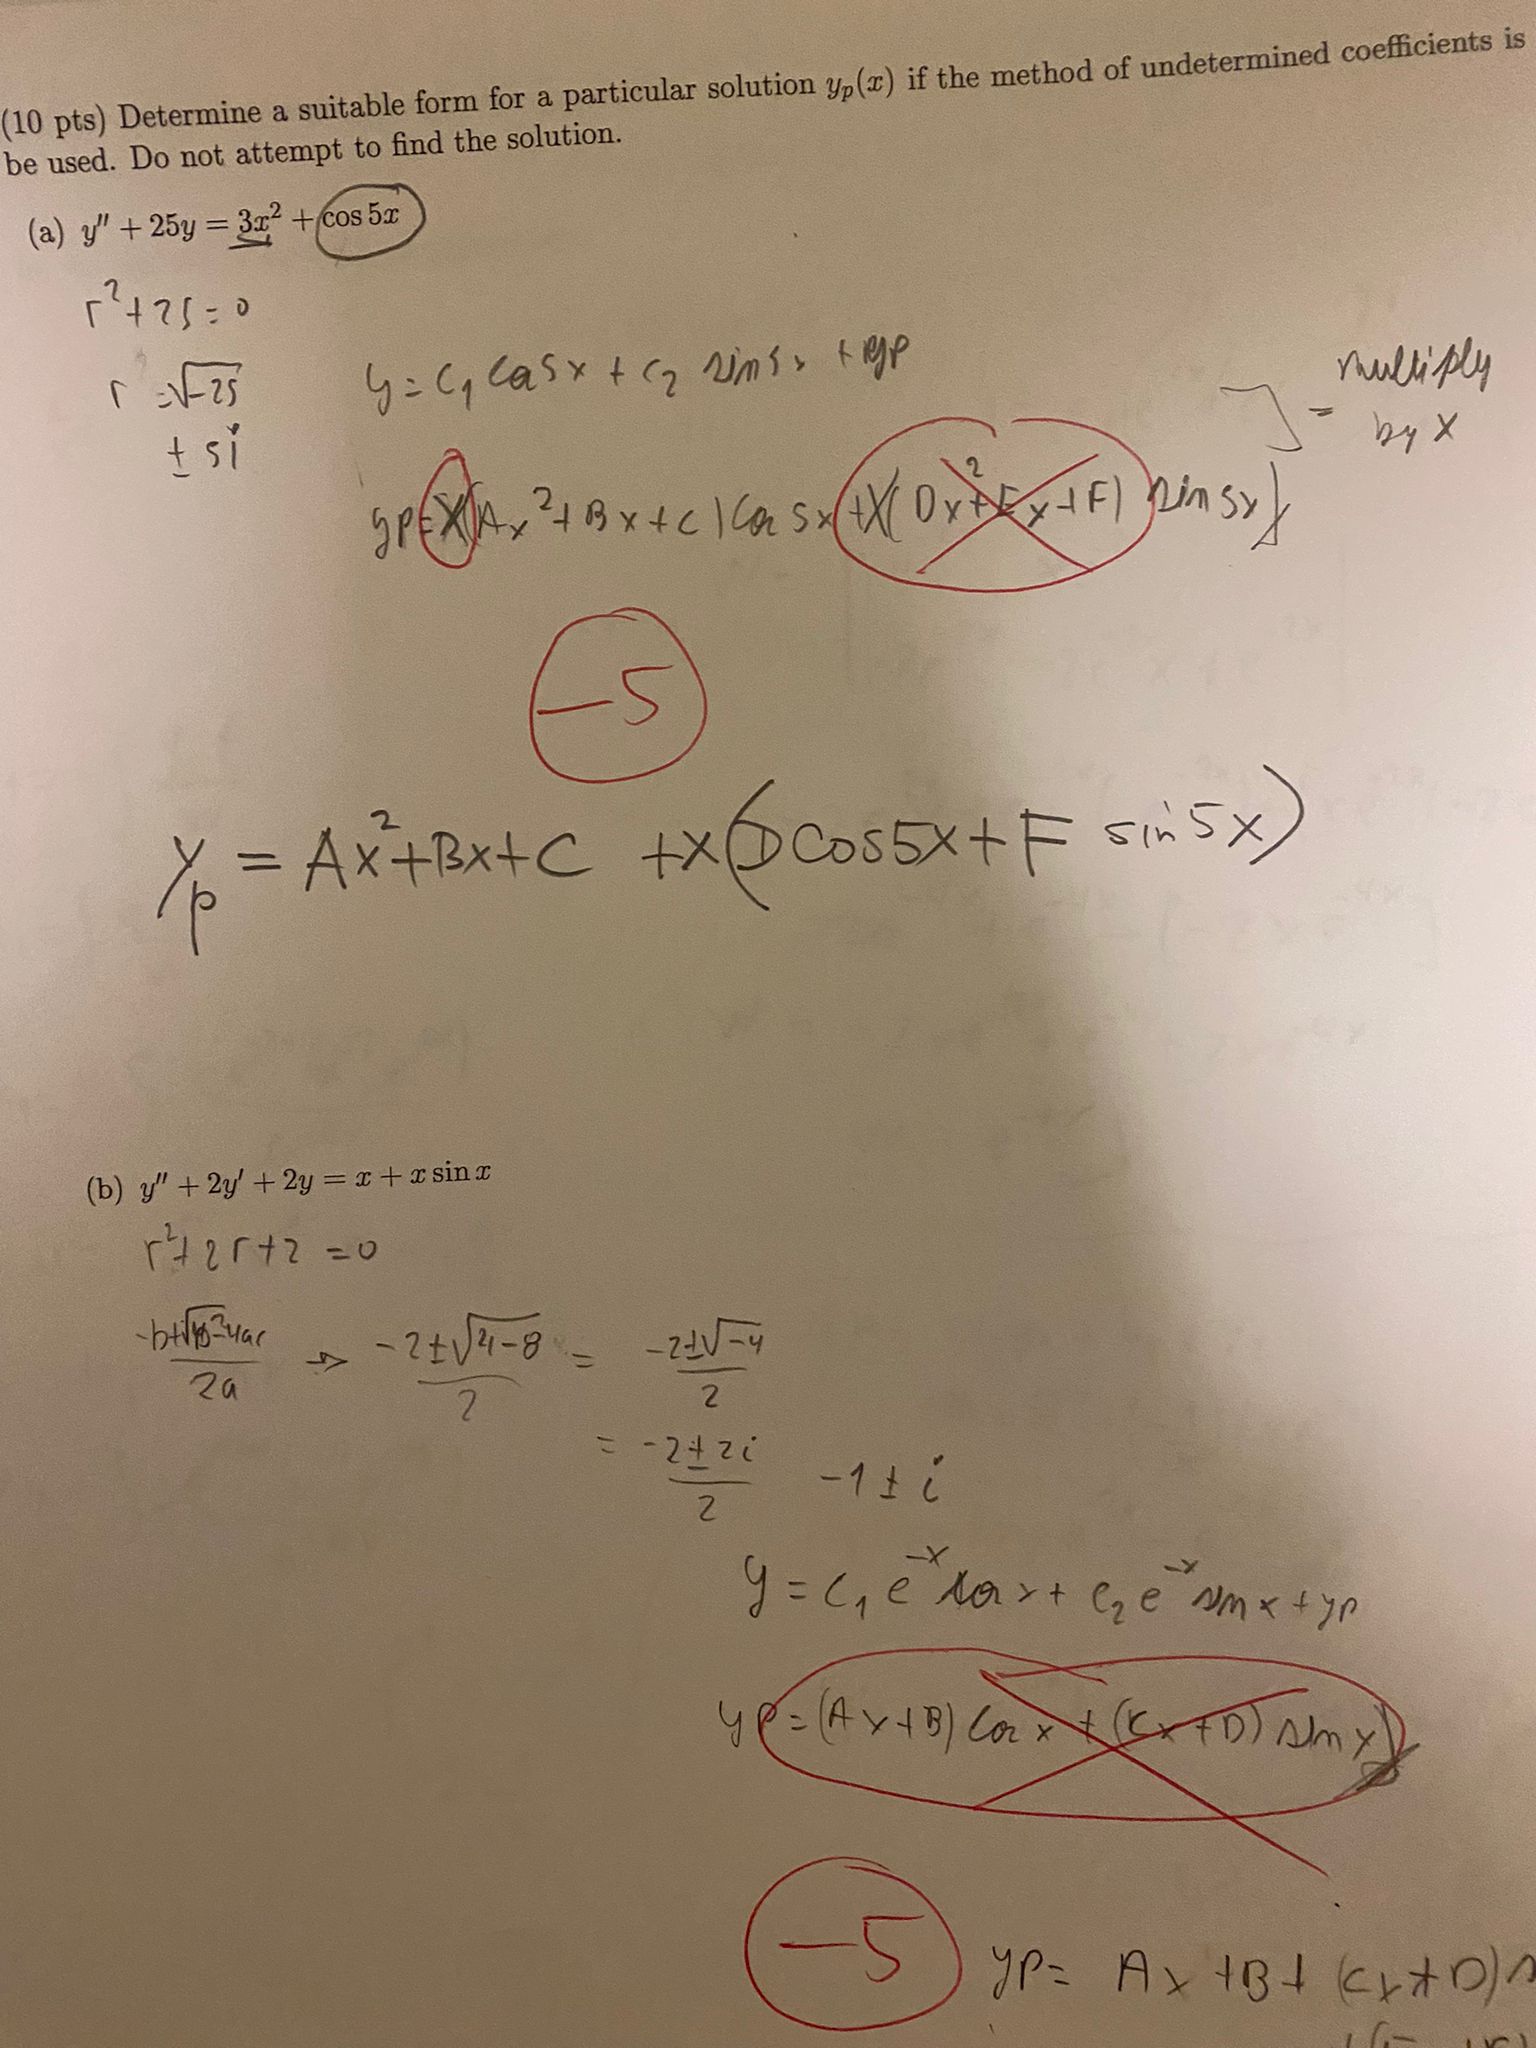 (10 pts) Determine a suitable form for a particular solution yp(x) if the method of undetermined coefficients is
be used. Do not attempt to find the solution.
(a) y″ + 25y = 3x² + cos 5x
r² + 25 = 0
r = √-25
± 5i
y = c₁ cos 5x + c₂ sin 5x + yp
] = multiply
by x
yp = x(Ax² + Bx + C) cos 5x + x(Dx² + Ex + F) sin 5x
-5
yp = Ax² + Bx + C + x(D cos 5x + F sin 5x)
(b) y″ + 2y′ + 2y = x + x sin x
r² + 2r + 2 = 0
-b±√b²-4ac / 2a → -2±√4-8 / 2 = -2±√-4 / 2
= -2±2i / 2 -1 ± i
y = c₁ e^-x cos x + c₂ e^-x sin x + yp
yp = (Ax + B) cos x + (Cx + D) sin x
-5
yp = Ax + B + (Cx + D)